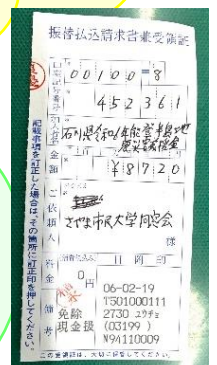 振替払込請求書兼受領証
00100=8
452361
石川県令和6年能登半島地
震災害義援金
金額
¥18720
ご依頼人
さやま市民大学同窓会
様
料金
0
円
日附印
備考
免除
現金扱
06-02-19
T501000111
2730 ユウチョ
(03199 )
N94110009
記載事項を訂正した場合は、その箇所に訂正印を押してください。
この受領証は、大切に保管してください。